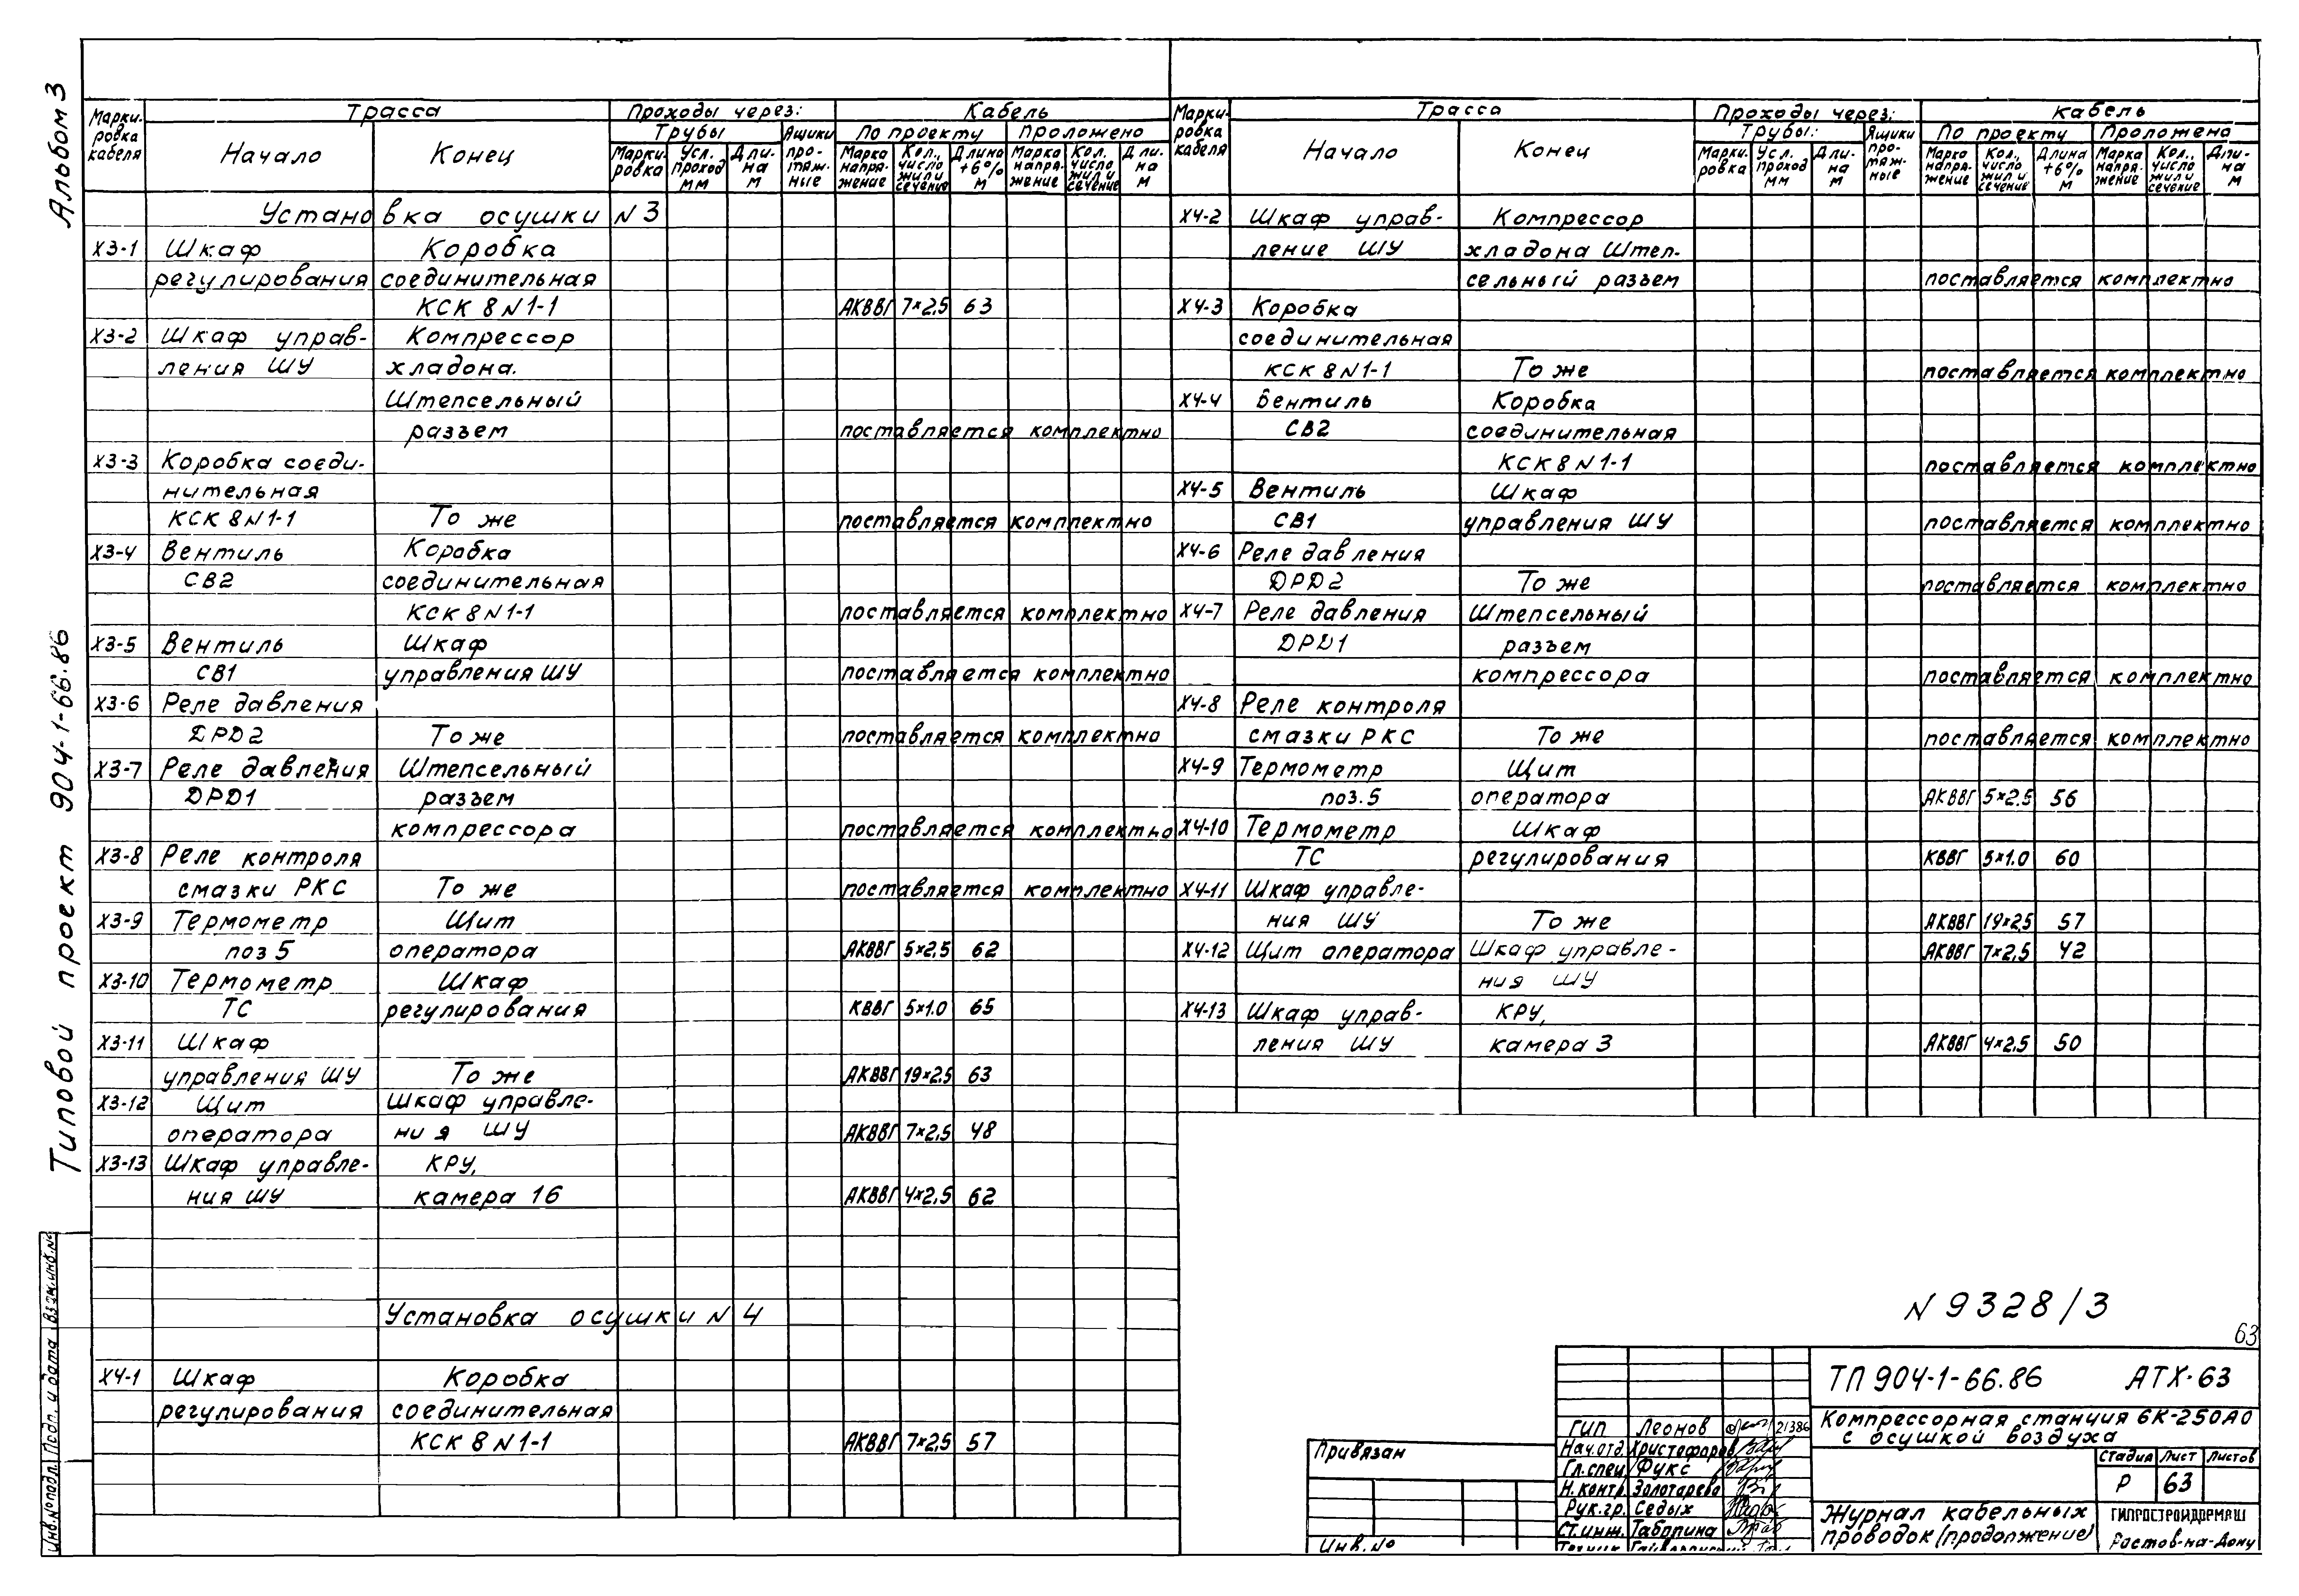 Альбом 3
Типовой проект 904-1-66.86
Инв.№подл. Подп. и дата Взам.инв.№
Марки-ровка кабеля
Трасса
Начало
Конец
Проходы через:
Трубы
Марки-ровка
Усл. проход мм
Дли-на м
Ящики про-тяж-ные
Кабель
По проекту
Проложено
Марка напря-жение
Кол., число жил и сечение
Длина +6% м
Марка напря-жение
Кол. число жил и сечение
Дли-на м
Установка осушки N3
Х3-1 Шкаф Коробка
регулирования соединительная
КСК 8 N1-1 АКВВГ 7×2,5 63
Х3-2 Шкаф управ- Компрессор
ления ШУ хладона.
Штепсельный
разъем поставляется комплектно
Х3-3 Коробка соеди-
нительная
КСК 8 N1-1 То же поставляется комплектно
Х3-4 Вентиль Коробка
СВ2 соединительная
КСК 8 N1-1 поставляется комплектно
Х3-5 Вентиль Шкаф
СВ1 управления ШУ поставляется комплектно
Х3-6 Реле давления
DPD2 То же поставляется комплектно
Х3-7 Реле давления Штепсельный
DPD1 разъем
компрессора поставляется комплектно
Х3-8 Реле контроля
смазки РКС То же поставляется комплектно
Х3-9 Термометр Щит
поз 5 оператора АКВВГ 5×2,5 62
Х3-10 Термометр Шкаф
ТС регулирования КВВГ 5×1.0 65
Х3-11 Шкаф
управления ШУ То же АКВВГ 19×2,5 63
Х3-12 Щит Шкаф управле-
оператора ния ШУ АКВВГ 7×2,5 48
Х3-13 Шкаф управле- КРУ,
ния ШУ камера 16 АКВВГ 4×2,5 62
Установка осушки N 4
Х4-1 Шкаф Коробка
регулирования соединительная
КСК 8 N1-1 АКВВГ 7×2,5 57
Марки-ровка кабеля
Трасса
Начало
Конец
Проходы через:
Трубы:
Марки-ровка
Усл. проход мм
Дли-на м
Ящики про-тяж-ные
Кабель
По проекту
Проложено
Марка напря-жение
Кол., число жил и сечение
Длина +6% м
Марка напря-жение
Кол., число жил и сечение
Дли-на м
Х4-2 Шкаф управ- Компрессор
ление ШУ хладона Штеп-
сельный разъем поставляется комплектно
Х4-3 Коробка
соединительная
КСК 8 N1-1 То же поставляется комплектно
Х4-4 Вентиль Коробка
СВ2 соединительная
КСК 8 N1-1 поставляется комплектно
Х4-5 Вентиль Шкаф
СВ1 управления ШУ поставляется комплектно
Х4-6 Реле давления
DPD2 То же поставляется комплектно
Х4-7 Реле давления Штепсельный
DPD1 разъем
компрессора поставляется комплектно
Х4-8 Реле контроля
смазки РКС То же поставляется комплектно
Х4-9 Термометр Щит
поз.5 оператора АКВВГ 5×2.5 56
Х4-10 Термометр Шкаф
ТС регулирования КВВГ 5×1.0 60
Х4-11 Шкаф управле-
ния ШУ То же АКВВГ 19×2,5 57
Х4-12 Щит оператора Шкаф управле- АКВВГ 7×2,5 42
ния ШУ
Х4-13 Шкаф управ- КРУ,
ления ШУ камера 3 АКВВГ 4×2,5 50
N 9328/3
63
ТП 904-1-66.86 АТХ-63
Компрессорная станция 6К-250А0
с осушкой воздуха
Стадия Лист Листов
Р 63
Журнал кабельных
проводок (продолжение)
ГИПРОСТРОЙДОРМАШ
Ростов-на-Дону
ГИП Леонов 21386
Нач.отд. Христофоров
Гл.спец. Фукс
Н.контр. Золотарева
Рук.гр. Седых
Ст.инж. Табопина
Привязан
Инв.№